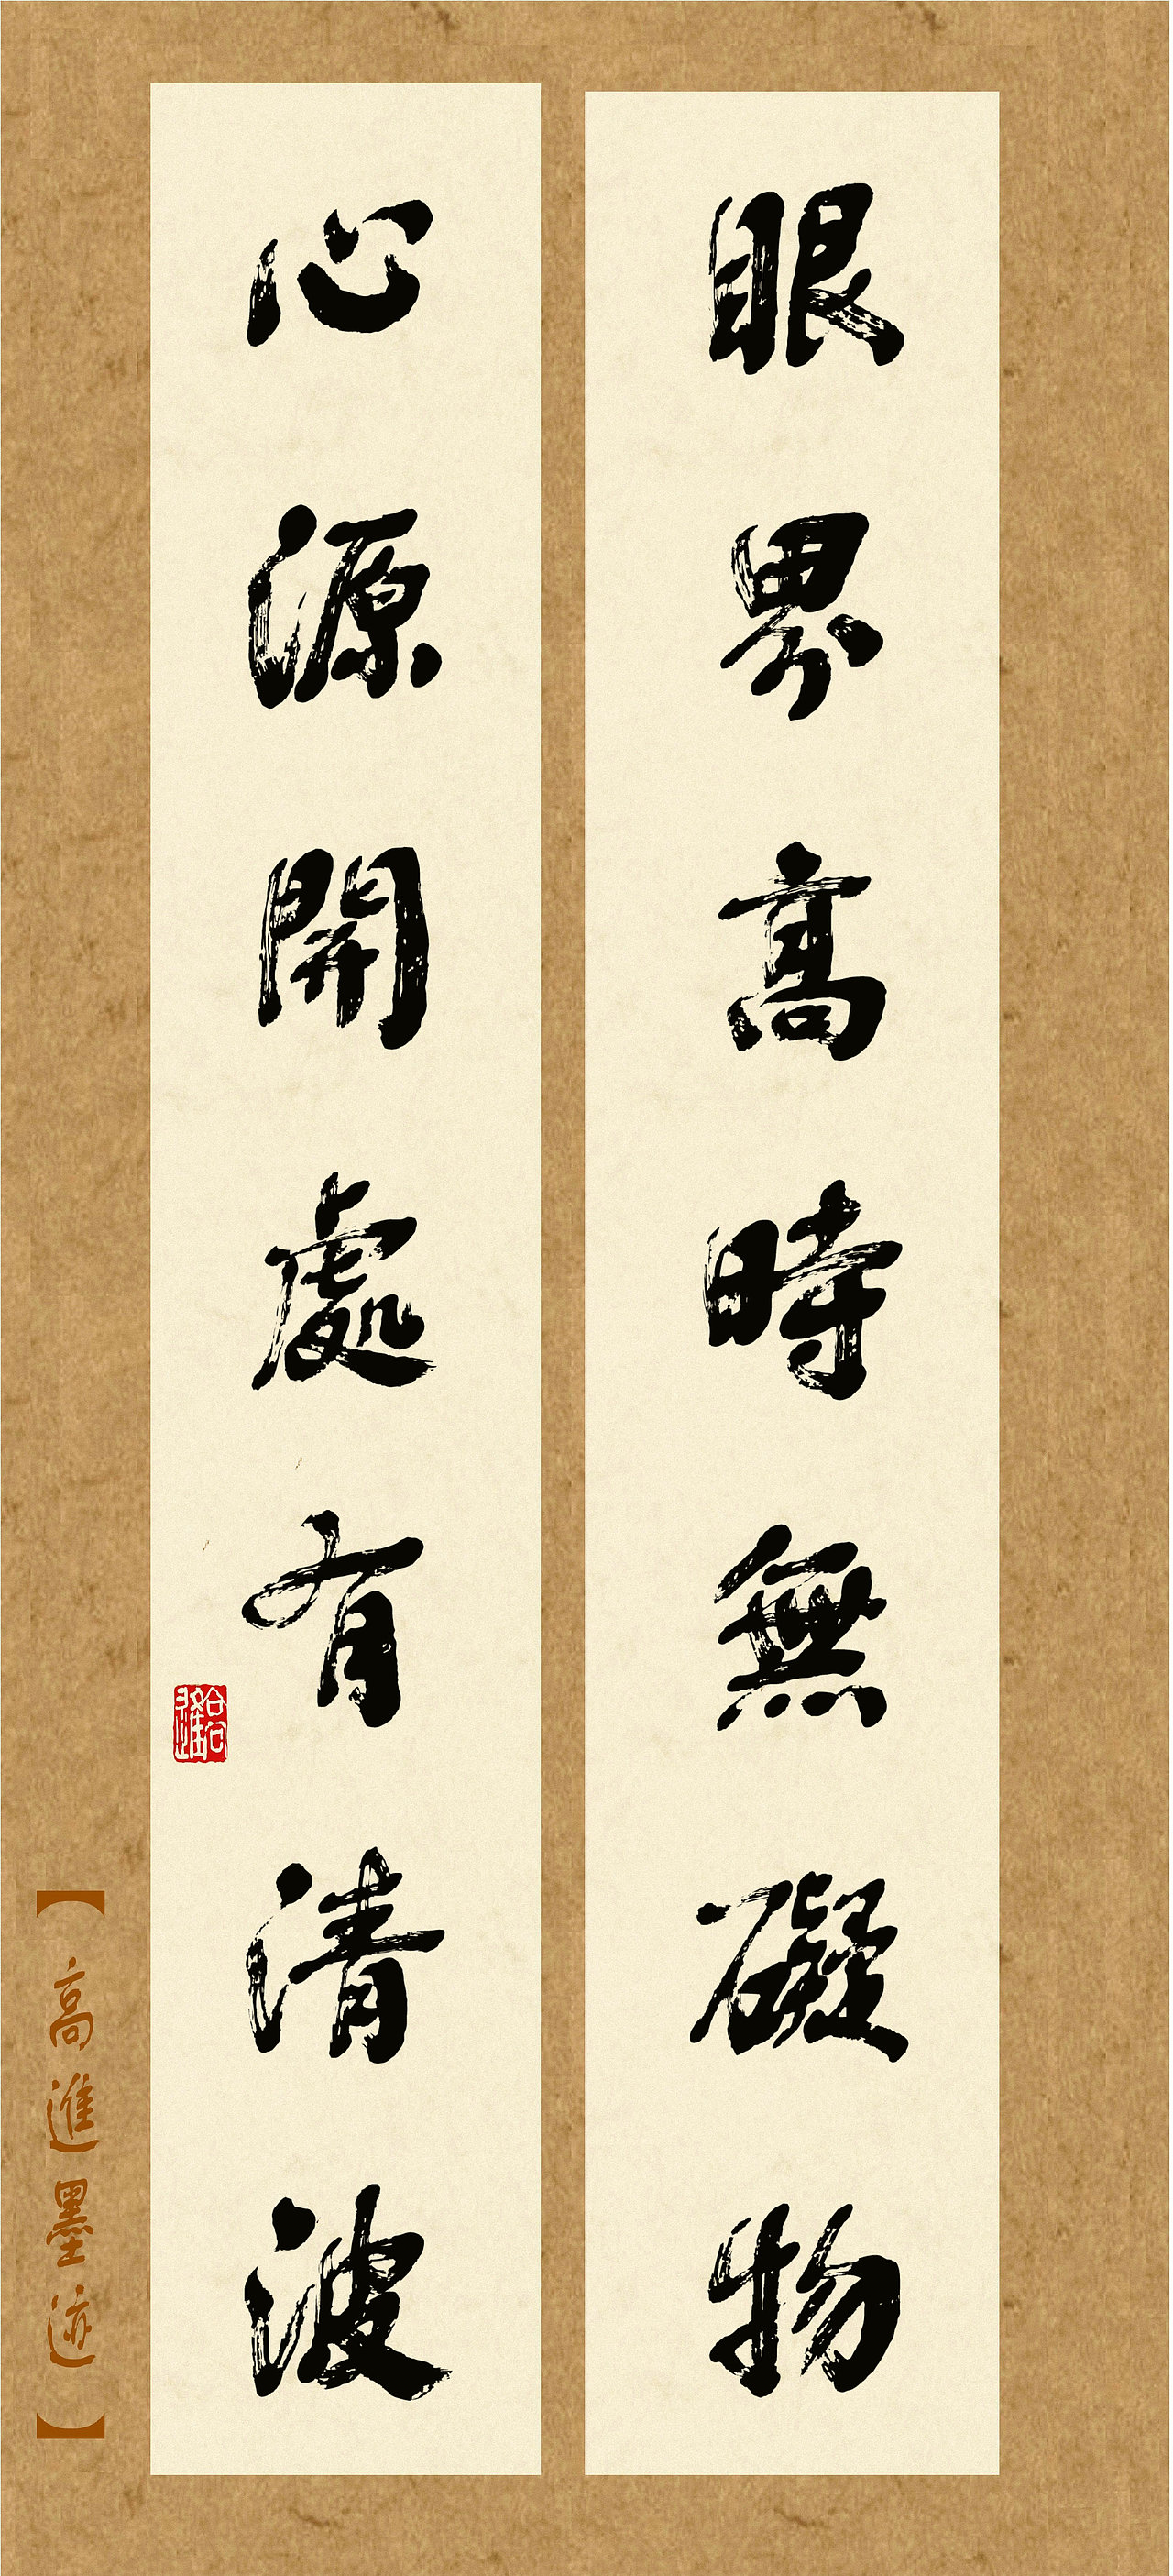 眼界高時無礙物
心源開處有清波
【高進墨迹】